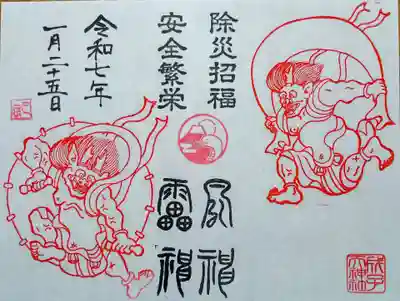 除災招福
安全繁栄
風神
雷神
令和七年
一月二十五日